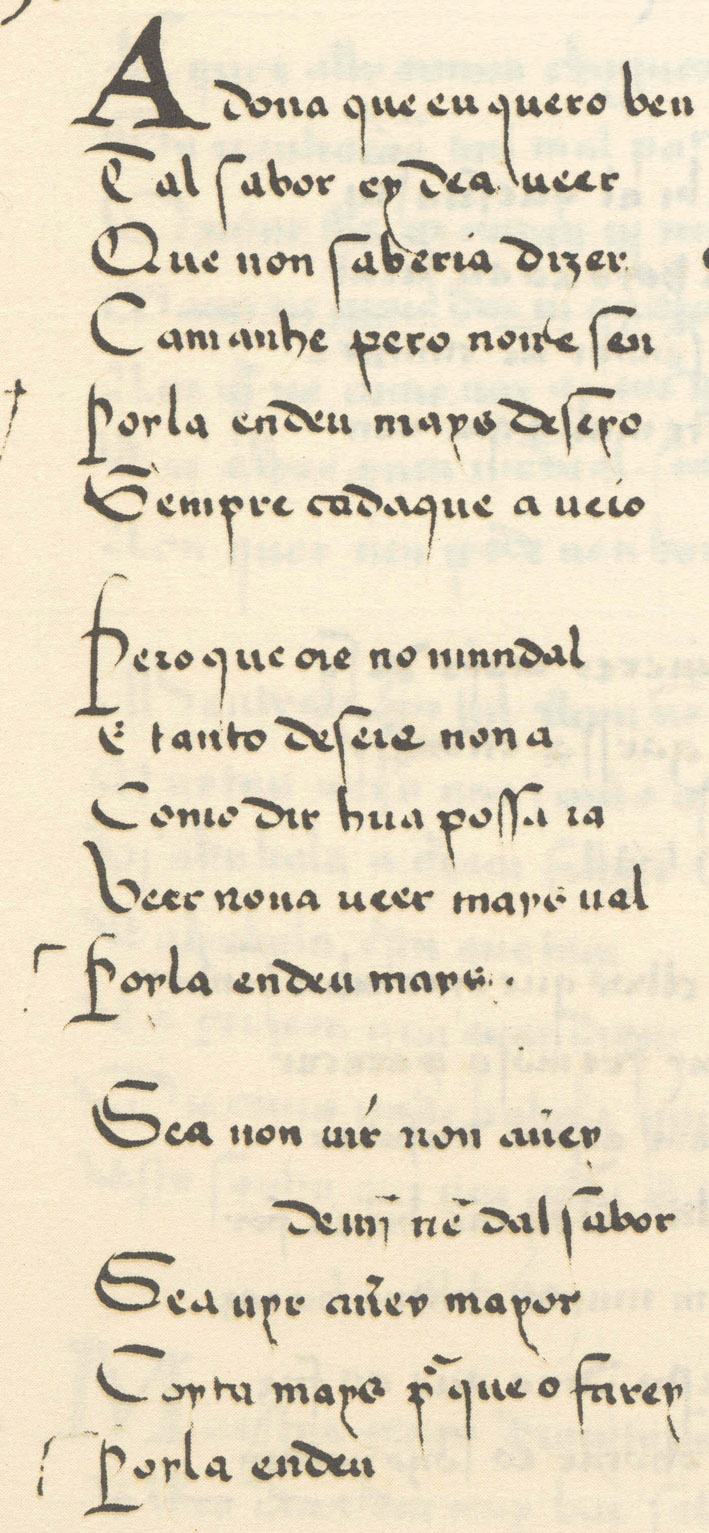 A dona que eu quero ben
Tal sabor ey dea ueer
Que non saberia dizer
Camanhe pero nome sen
Poyla endeu mays deseio
Sempre cadaque a ueio
Pero que oie no mundal
E tanto deseie non a
Como dir hua possa ia
Veer nona ueer mays ual
Poyla endeu mays
Sea non uir non auerey
demī nē dal sabor
Sea uyr auerey mayor
Coyta mays pa que o farey
Poyla endeu